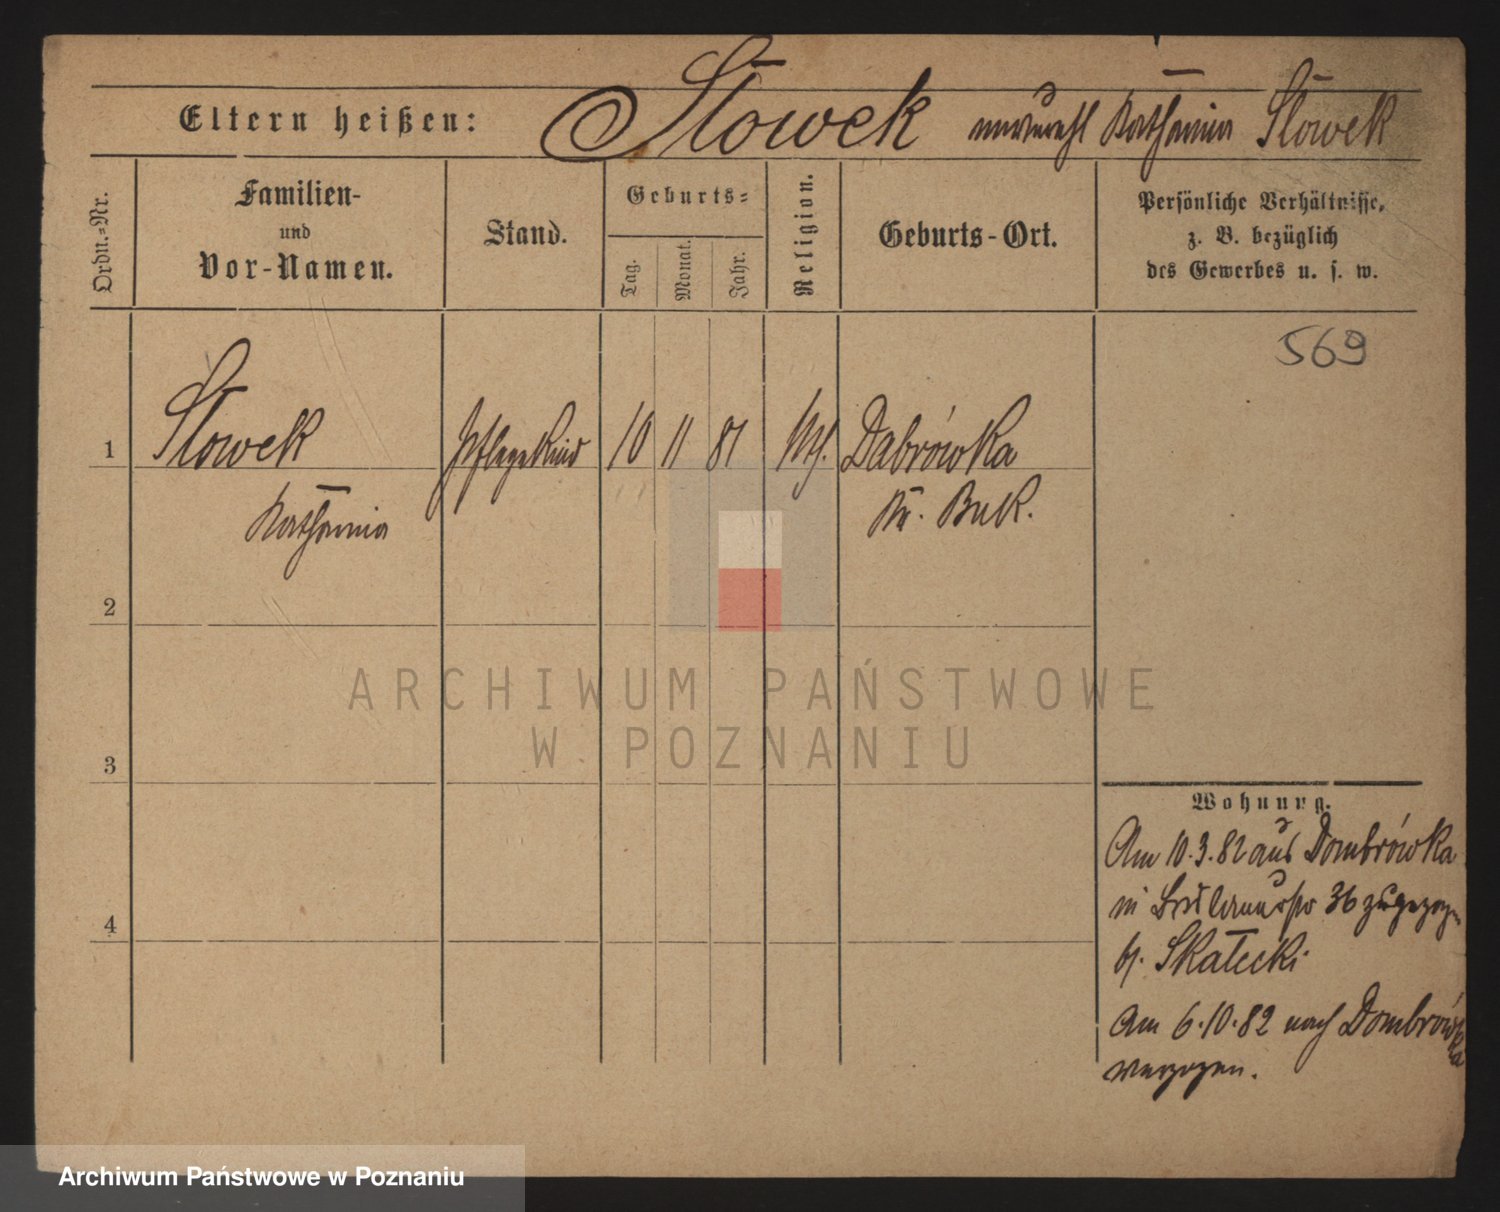 Eltern heißen: Słowek unverehl Katharina Słowek
Ordn.-Nr.
Familien-
und
Vor-Namen.
Stand.
Geburts-
Tag.
Monat.
Jahr.
Religion.
Geburts-Ort.
Persönliche Verhältnisse,
z. B. bezüglich
des Gewerbes u. s. w.
569
1 Słowek Pflegekind 10 11 81 kth. Dabrówka
Katharina Kr. Buk.
2
3
4
Wohnung.
Am 10.3.82 aus Dombrówka
in 36 zugezogen
b. Skałecki
Am 6.10.82 nach Dombrówka
verzogen.
ARCHIWUM PAŃSTWOWE
W POZNANIU
Archiwum Państwowe w Poznaniu